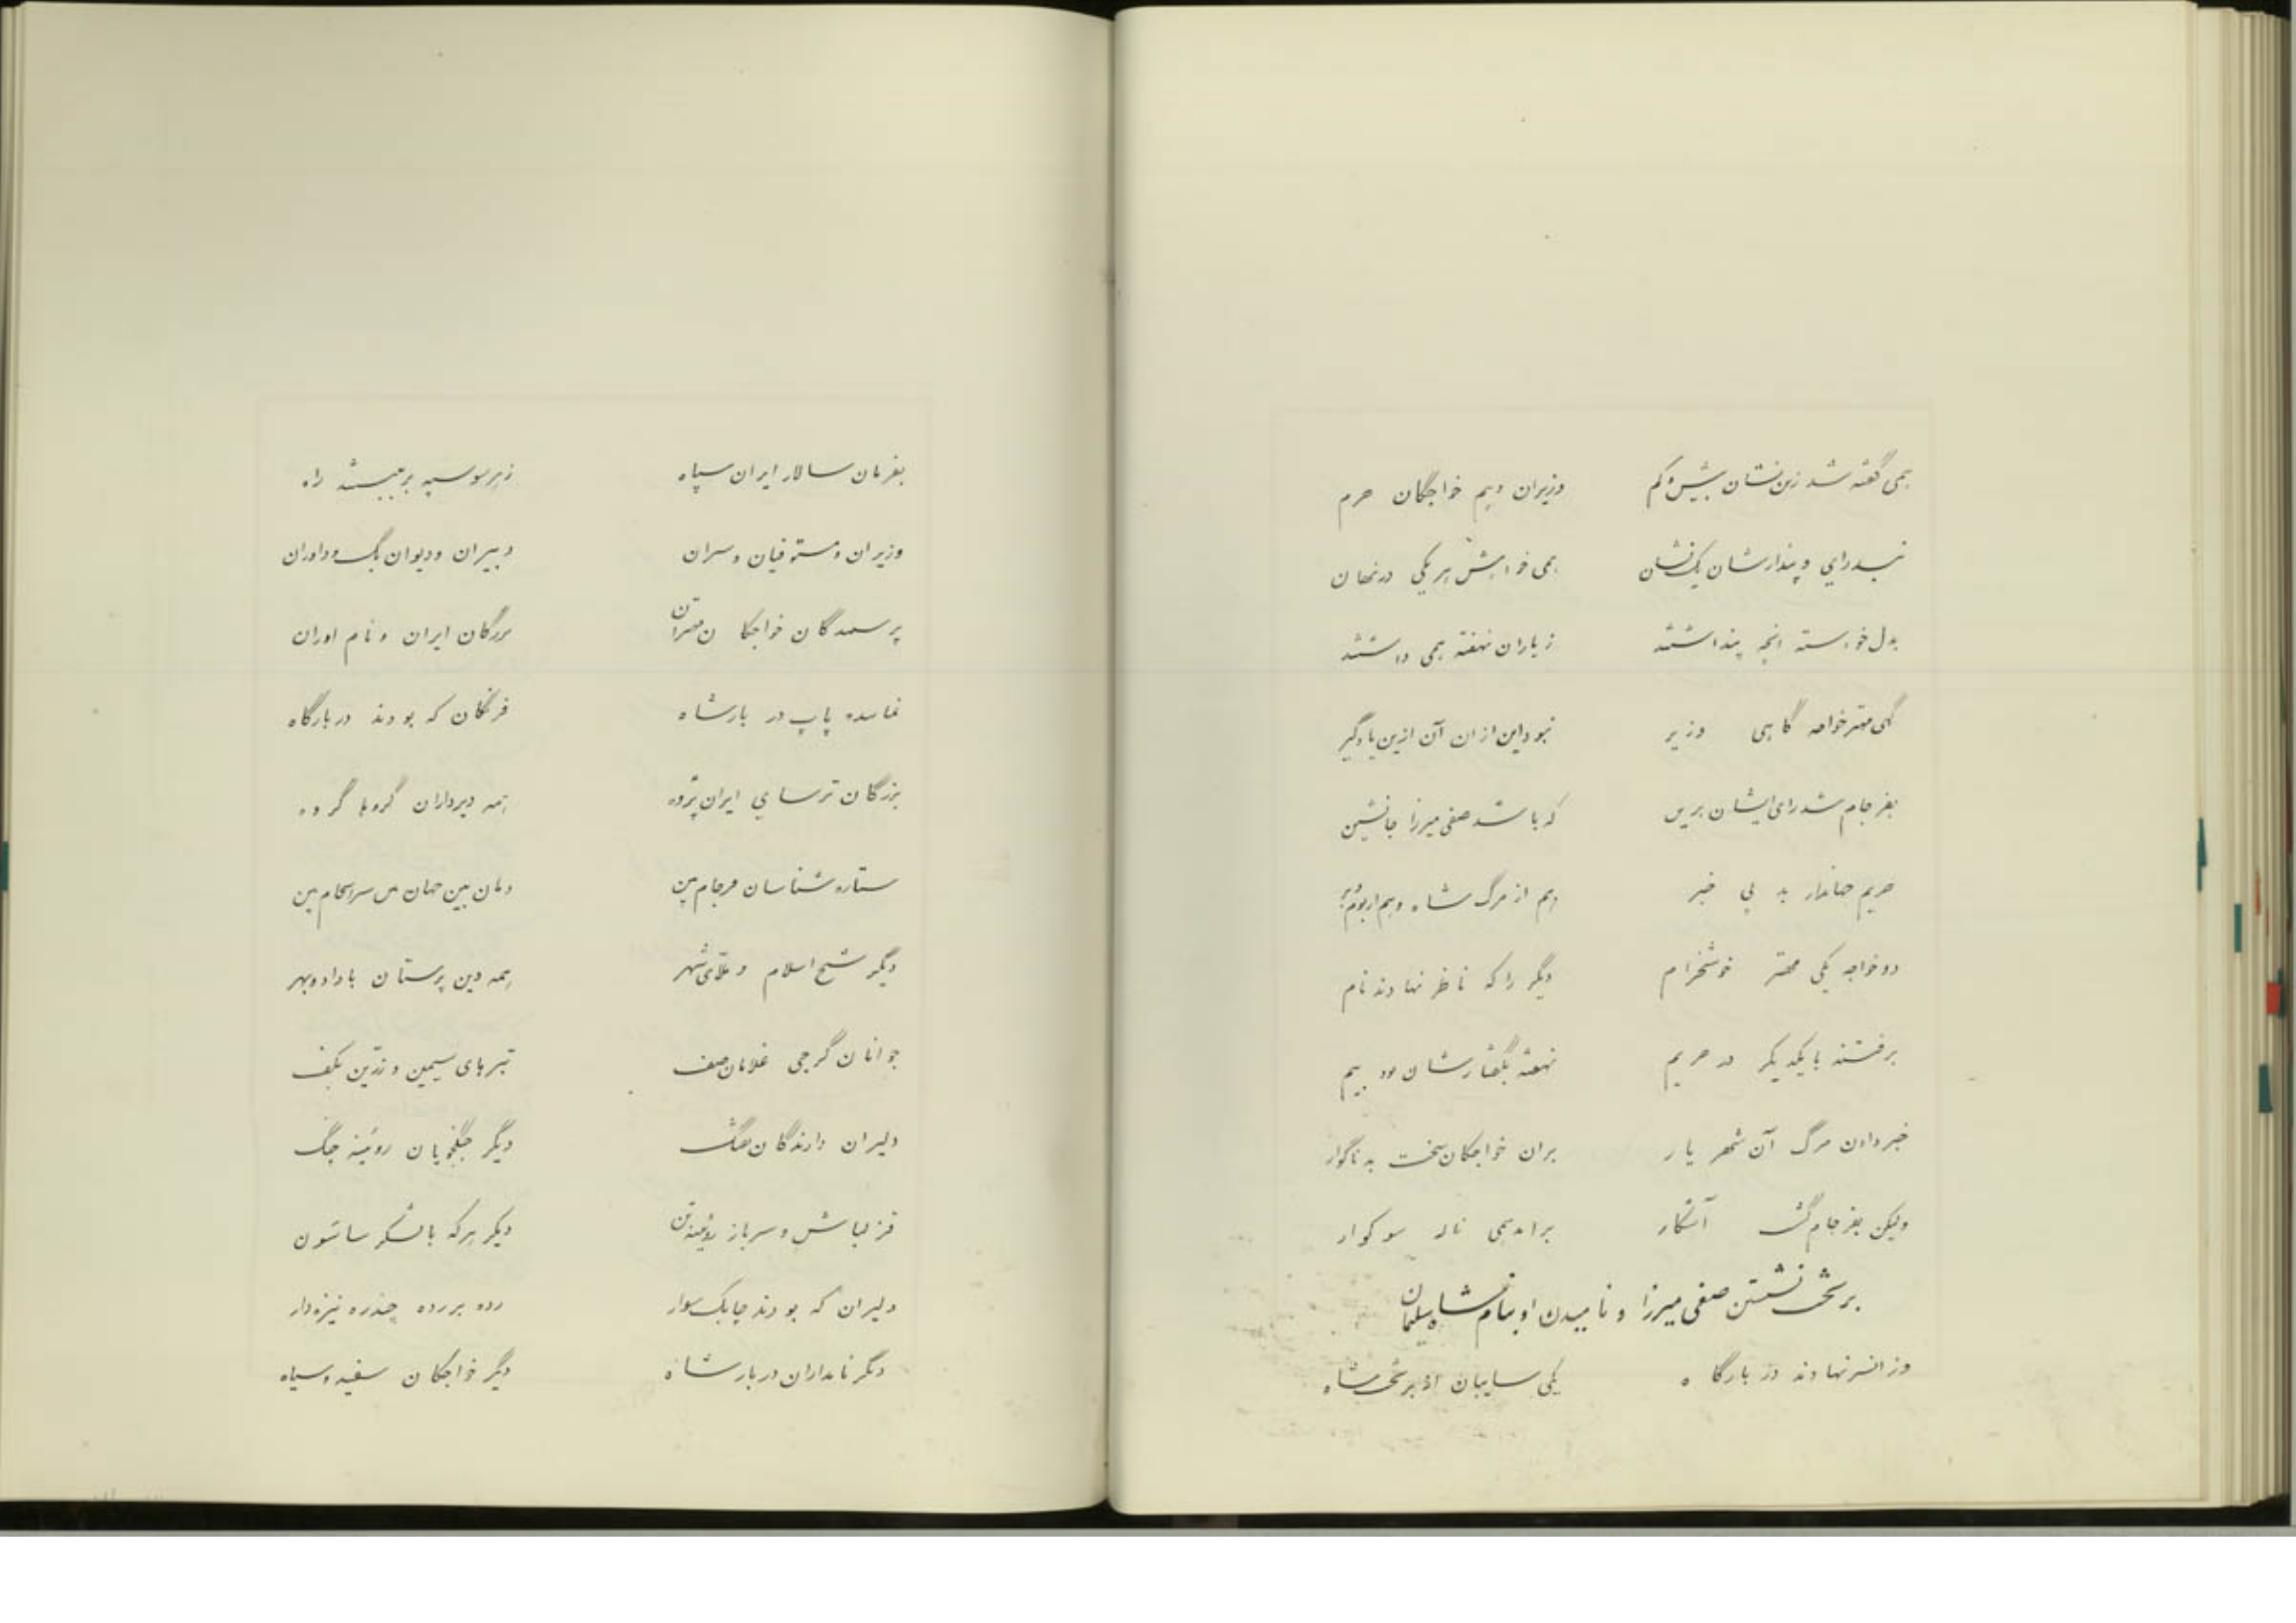 همی گفته شد زین نشان بیش و کم وزیران و هم خواجگان حرم
نبد رای و پندارشان یک نشان همی خواهش هر یکی در نهان
بدل خواسته انچه پنداشتند ز یاران نهفته همی داشتند
گهی مهتر خواجه گاهی وزیر نبود این از ان آن ازین یادگیر
بفرجام شد رای ایشان برین که باشد صفی میرزا جانشین
حریم جاندار بد بی خبر هم از مرگ شاه و هم از
دو خواجه یکی مهتر خوشخرام دیگر را که ناظر نهادند نام
برفتند با یکدیگر در حریم نهفته بگفتارشان بود بیم
خبر دادن مرگ آن شهریار بران خواجگان سخت بد ناگوار
ولیکن بفرجام گشت آشکار برامد همی ناله سوگوار
بر تخت نشستن صفی میرزا و نامیدن او بنام شاه سلیمان
وز انسر نهادند در بارگاه یکی سایبان از بر تخت شاه
بفرمان سالار ایران سپاه ز هر سو سپه بر ببستند راه
وزیران و مستوفیان و سران دبیران و دیوان بگ و داوران
پرستندگان خواجگان مهتران بزرگان ایران و نام اوران
نماینده پاپ در بار شاه فرنگان که بودند در بارگاه
بزرگان ترسای ایران پژوه همه دیرداران گروها گروه
ستاره شناسان فرجام بین جهان سرانجام بین
دیگر شیخ اسلام و ملای شهر همه دین پرستان با داد و بهر
جوانان گرجی غلامان صف تبرهای سیمین و زرین بکف
دلیران دارندگان تفنگ دیگر جنگجویان روئینه چنگ
قزلباش و سرباز روئینه تن دیگر هرکه با لشکر
دلیران که بودند چابک سوار رده بر رده نیزه دار
دگر نامداران دربار شاه دیگر خواجگان سفید و سیاه